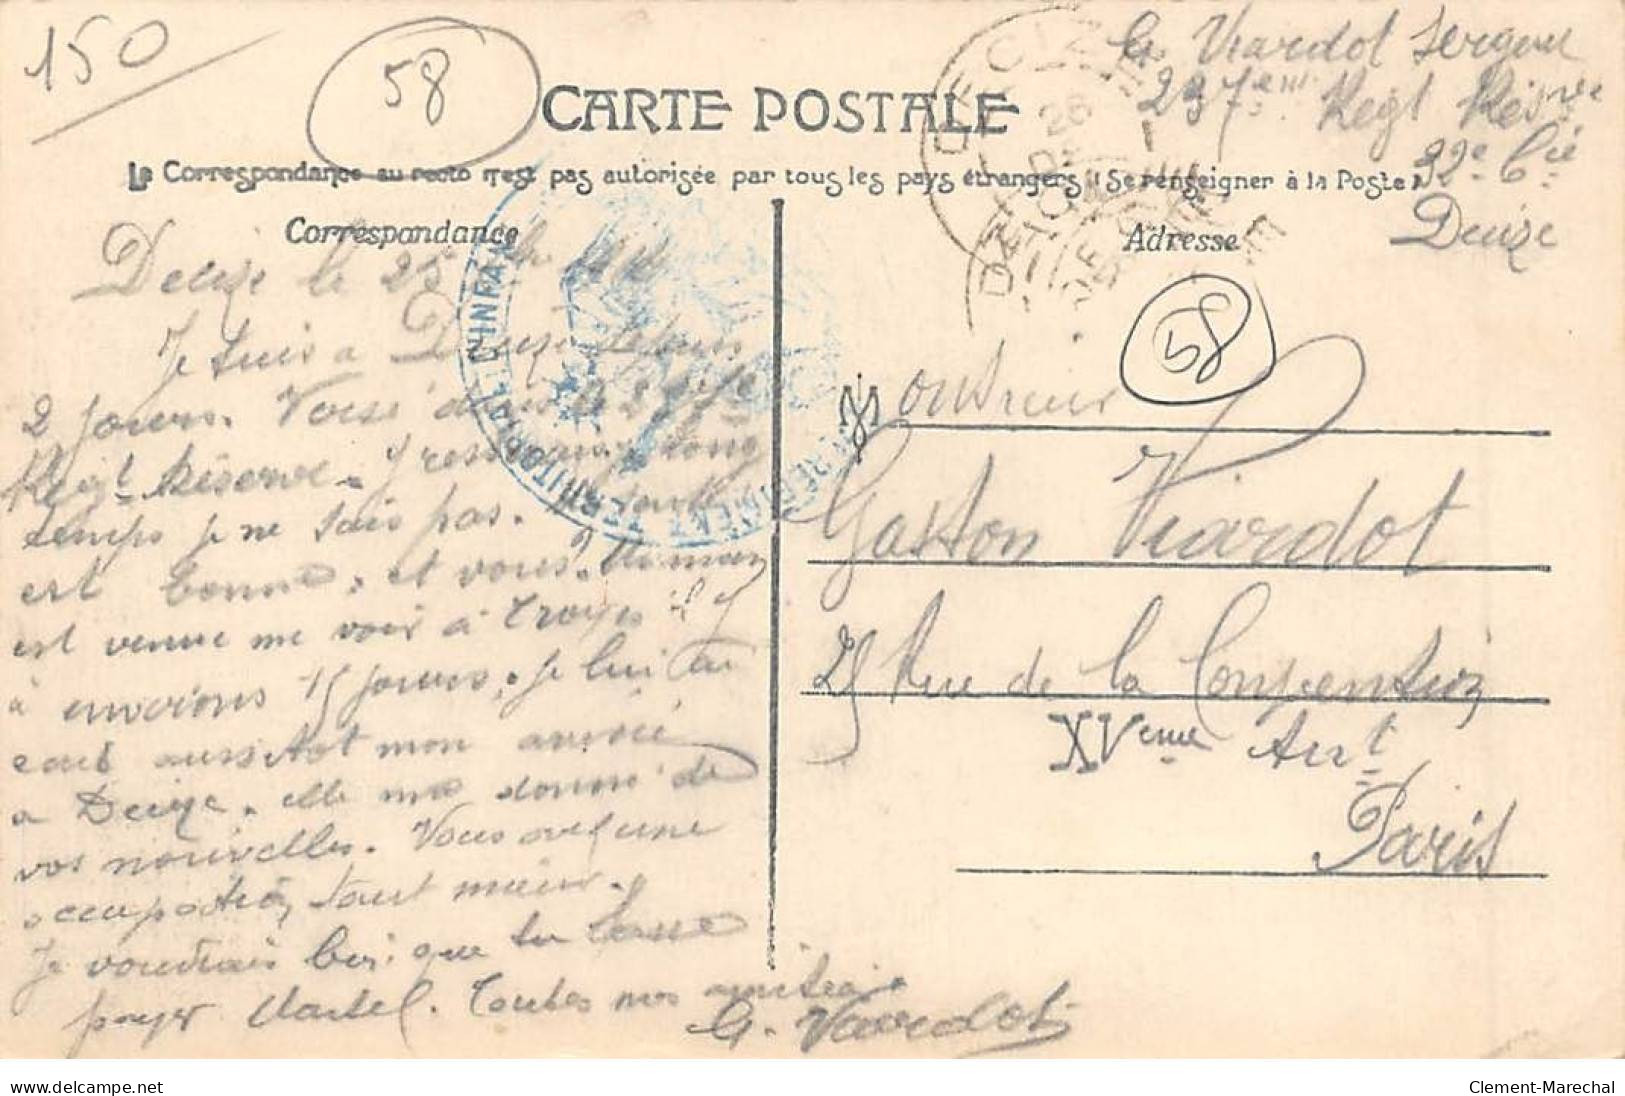 150
58
CARTE POSTALE
La Correspondance au recto n'est pas autorisée par tous les pays étrangers (Se renseigner à la Poste)
Correspondance
Adresse
G. Viardot Sergent
237eme Regt Résrve
32e Cie
Decize
DECIZE
26
REGIMENT TERRITORIAL D'INFAN
58
Decize le 25
Je suis a Decize depuis
2 jours. Versé dans le 237e
Regt Réserve. J'y resterais long
temps je ne sais pas. Ma santé
est bonne, et vous? Maman
est venue me voir à Troyes il y
à environs 15 jours. Je lui ai
écrit aussitot mon arrivée
a Decize. elle me donne de
vos nouvelles. Vous avez une
occupation, tant mieux.
Je voudrais bien que tu fasse
payer Martel. Toutes nos amitiés
G. Viardot
Monsieur
Gaston Viardot
25 Rue de la Convention
XVeme Arrt
Paris
www.delcampe.net
Clement-Marechal